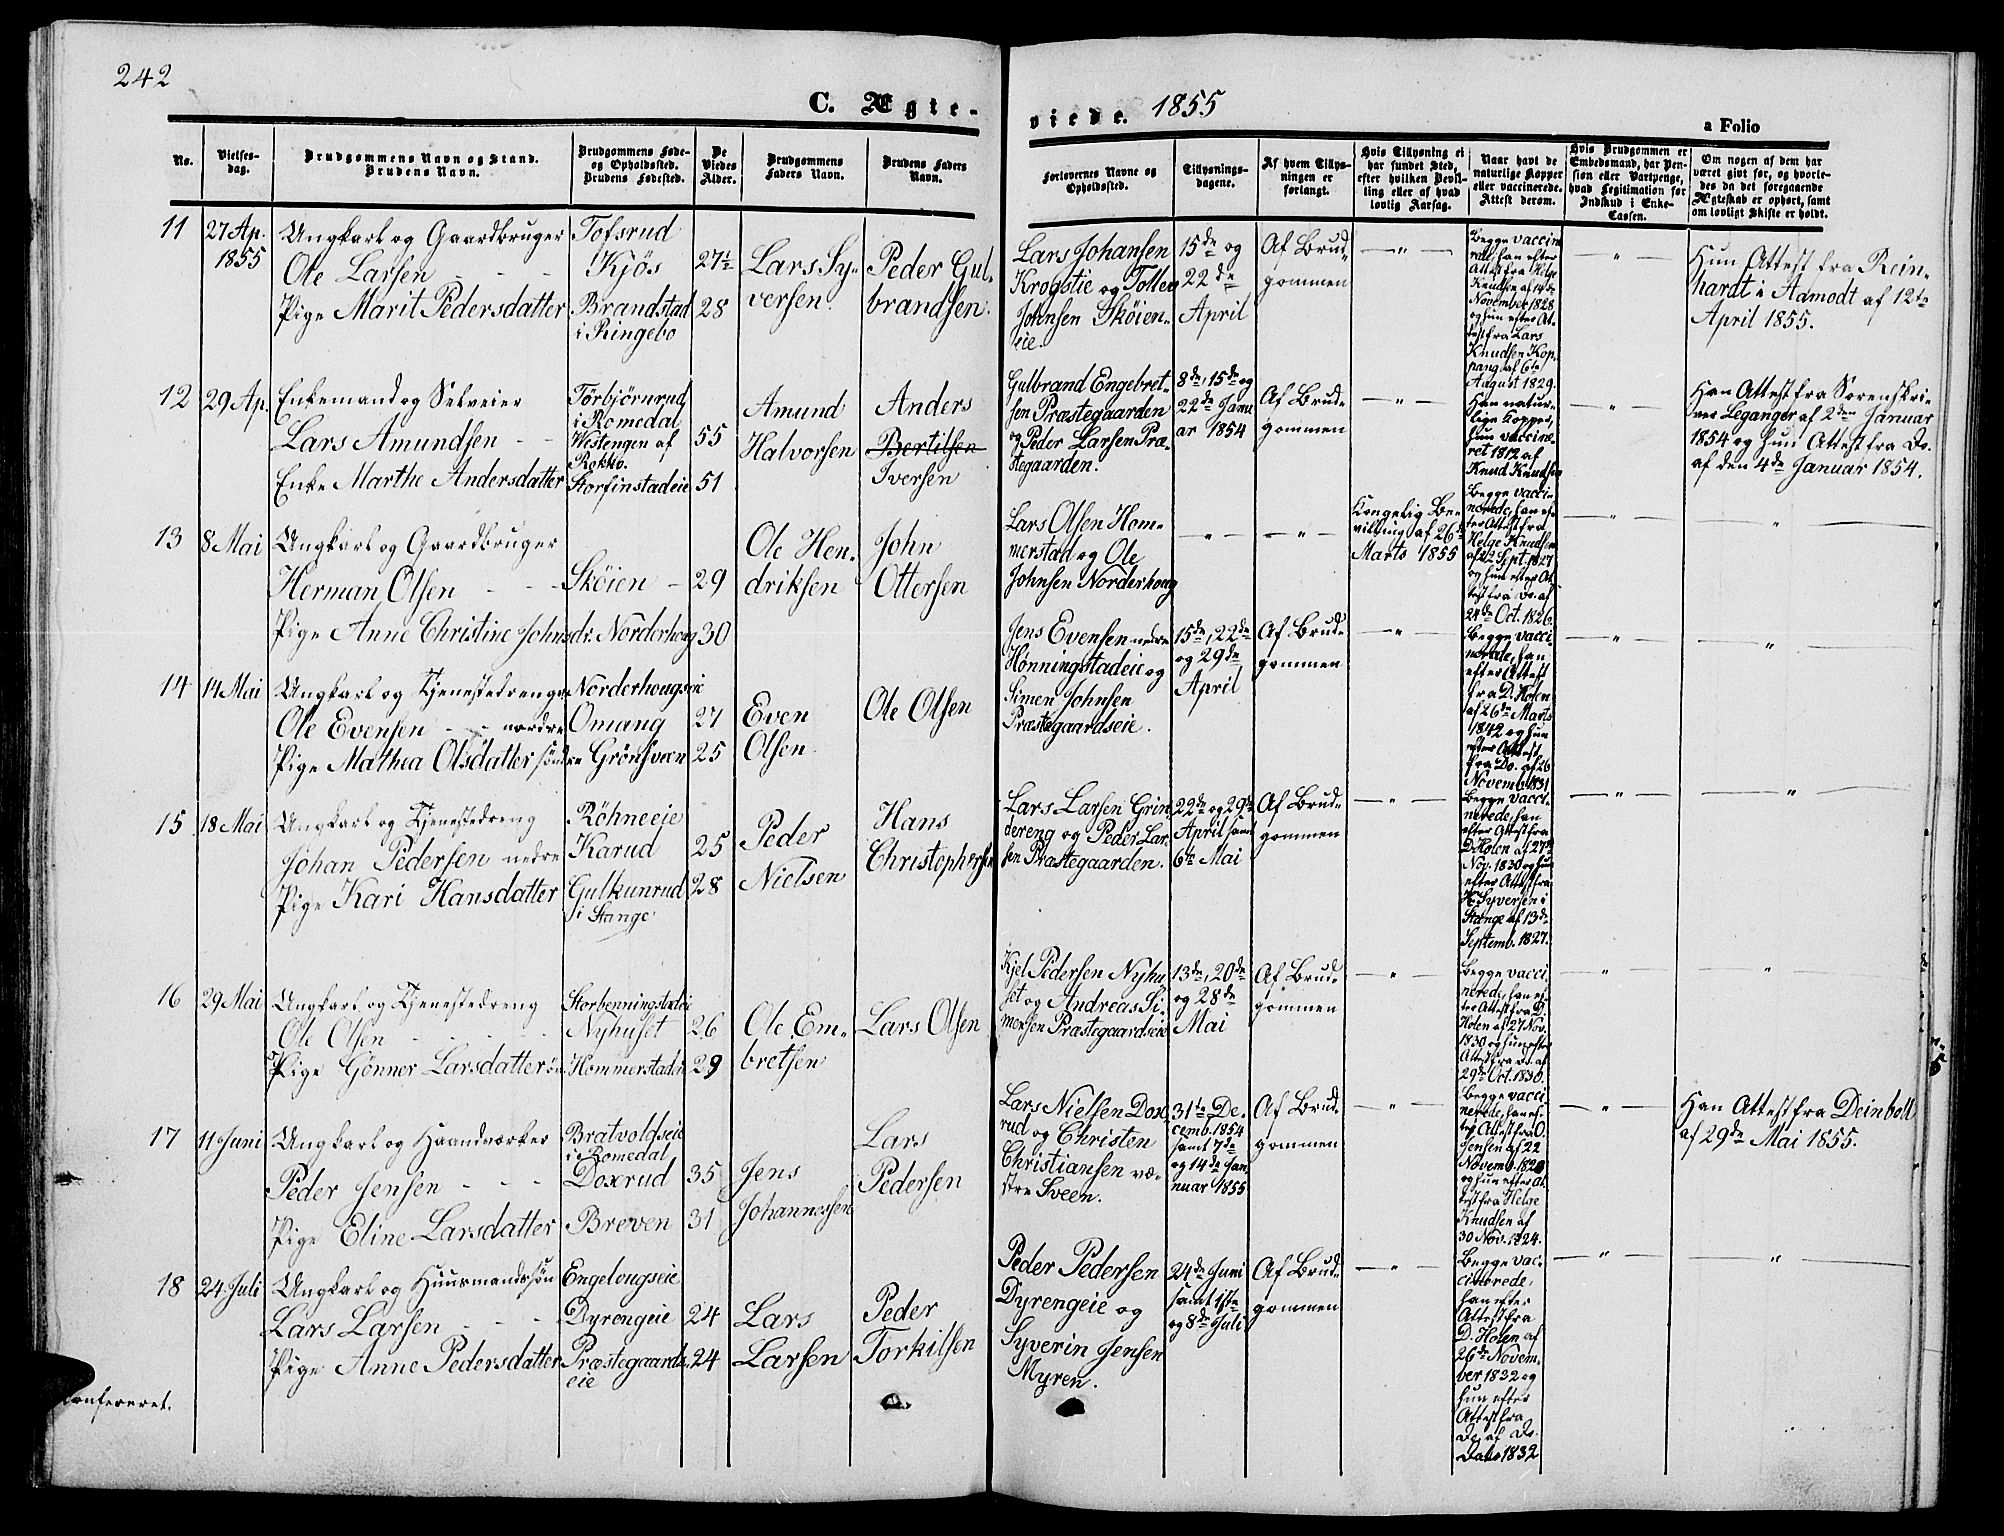 242
C. Ægte-
viede. 1855
a Folio
No.
Vielses-
dag.
Brudgommens Navn og Stand.
Brudens Navn.
Brudgommens Føde-
og Opholdssted.
Brudens Fødested.
De
Viedes
Alder.
Brudgommens
Faders Navn.
Brudens Faders
Navn.
Forlovernes Navne og
Opholdssted.
Tillysnings-
dagene.
Af hvem Tillys-
ningen er
forlangt.
Hvis Tillysning ei
har fundet Sted,
efter hvilken Bevil-
ling eller af hvad
lovlig Aarsag.
Naar havt de
naturlige Kopper
eller vaccinerede.
Attest derom.
Hvis Brudgommen er
Embedsmand, har Pen-
sion eller Vartpenge,
hvad Legitimation for
Indskud i Enke-
Cassen.
Om nogen af dem har
været givt før, og hvorle-
des da det foregaaende
Ægteskab er ophørt, samt
om lovligt Skifte er holdt.
11
27 Ap.
1855
Ungkarl og Gaardbruger
Ole Larsen - - -
Pige Marit Pedersdatter
Tofsrud
Kjös
Brandstad
i Ringebo
27½
28
Lars Sy-
versen.
Peder Gul-
brandsen.
Lars Johansen
Krogstie og Tollev
Johnsen Sköien-
eie.
15de og
22de
April
Af Brud-
gommen
— " —
Begge vaccine-
rede, han efter
Attest fra Helge
Knudsen af 14de
November 1828
og hun efter At-
test fra Lars
Knudsen Kop-
pang af 6te
August 1829.
— " —
Hun Attest fra Rein-
hardt i Aamodt af 12te
April 1855.
12
29 Ap.
Enkemand og Selveier
Lars Amundsen - -
Enke Marthe Andersdatter
Törbjörnrud
i Romedal
Westengen af
Rokko.
Storfinstadeie
55
51
Amund
Halvorsen
Anders
Bertilsen
Iversen
Gulbrand Engebret-
sen Præstegaarden
og Peder Larsen Præ-
stegaarden.
8de, 15de og
22de Janu
ar 1854
Af Brud-
gommen
— " —
Han natur-
lige Kopper,
hun vaccine-
ret 1812 af
Knud Knudsen
— " —
Han Attest fra Sorenskri-
ver Leganger af 2den Januar
1854 og hun Attest fra Do.
af den 4de Januar 1854.
13
8 Mai
Ungkarl og Gaardbruger
Herman Olsen - - -
Pige Anne Christine Johnsdr.
Sköien -
Norderhoug
29
30
Ole Hen-
driksen
John
Ottersen
Lars Olsen Hom-
merstad og Ole
Johnsen Norderhoug
— " —
— " —
Kongelig Be-
villing af 26de
Marts 1855
Begge vacci-
nerede, han ef-
ter Attest fra
Helge Knudsen
af 22 Sept. 1827
og hun efter At-
test fra Do. af
24de Oct. 1826.
— " —
"
14
14 Mai
Ungkarl og Tjenestedreng
Ole Evensen - - nordre
Pige Mathea Olsdatter söndre
Norderhougseie
Omang
Grönsveen
27
25
Even
Olsen
Ole Olsen
Jens Evensen nedre
Hönningstadeie og
Simen Johnsen
Præstegaardseie.
15de, 22de
og 29de
April
Af Brud-
gommen
— " —
Begge vacci-
nerede, han
efter Attest
fra D. Holen
af 26de Marts
1842 og hun
efter Attest
fra Do. af 26
Novemb. 1831
— " —
"
15
18 Mai
Ungkarl og Tjenestedreng
Johan Pedersen nedre
Pige Kari Hansdatter
Röhneeie
Karud
Gulkunrud
i Stange
25
28
Peder
Nielsen
Hans
Christophersen
Lars Larsen Grin-
dereng og Peder Lar-
sen Præstegaarden.
22de og 29de
April samt
6te Mai
Af Brud-
gommen
— " —
Begge vacci-
nerede, han
efter Attest fra
D. Holen af 27de
Nov. 1830 og hun
efter Attest fra
Syversen i
Stange af 13de
Septemb. 1827.
— " —
"
16
29 Mai
Ungkarl og Tjenestedreng
Ole Olsen - - - -
Pige Gönner Larsdatter
Storbenningstadeie
Nyhuset
Hommerstadeie
26
29
Ole Em-
bretsen
Lars Olsen
Kjel Pedersen Nyhu-
set og Andreas Si-
monsen Præstegaardseie
13de, 20de
og 28de
Mai
Af Brud-
gommen
— " —
Begge vacci
nerede, han ef-
ter Attest fra D.
Holen af 27 Nov.
1830 og hun efter
Attest fra Do. af
29de Oct. 1830.
— " —
"
17
11 Juni
Ungkarl og Haandværker
Peder Jensen - - -
Pige Eline Larsdatter
Bratvoldseie
i Romedal
Doxrud
Breven
35
31
Jens
Johannessen
Lars
Pedersen
Lars Nielsen Dox-
rud og Christen
Christiansen væ-
stre Sveen.
31te De-
cemb. 1854
samt 7de
og 14de Jan
nuar 1855
Af Brud-
gommen
— " —
Begge vacci
nerede, han ef-
ter Attest fra O.
Jensen af 22
Novemb. 1820
og hun efter At-
test fra Helge
Knudsen af
30 Nov. 1824.
— " —
Han Attest fra Deinboll
af 29de Mai 1855.
18
24 Juli
Ungkarl og Huusmandssön
Lars Larsen - - -
Pige Anne Pedersdatter
Engelougseie
Dyrengeie
Præstegaards-
eie
24
24
Lars
Larsen
Peder
Torkilsen
Peder Pedersen
Dyrengeie og
Syverin Jensen
Myren.
24de Juni
samt 1ste
og 8de Juli
Af Brud-
gommen
— " —
Begge vac-
cinerede,
han efter
Attest fra
D. Holen af
26de Novem-
ber 1832 og
hun efter
Attest fra
Do. af Do.
Dato 1832
— " —
"
Confereret.